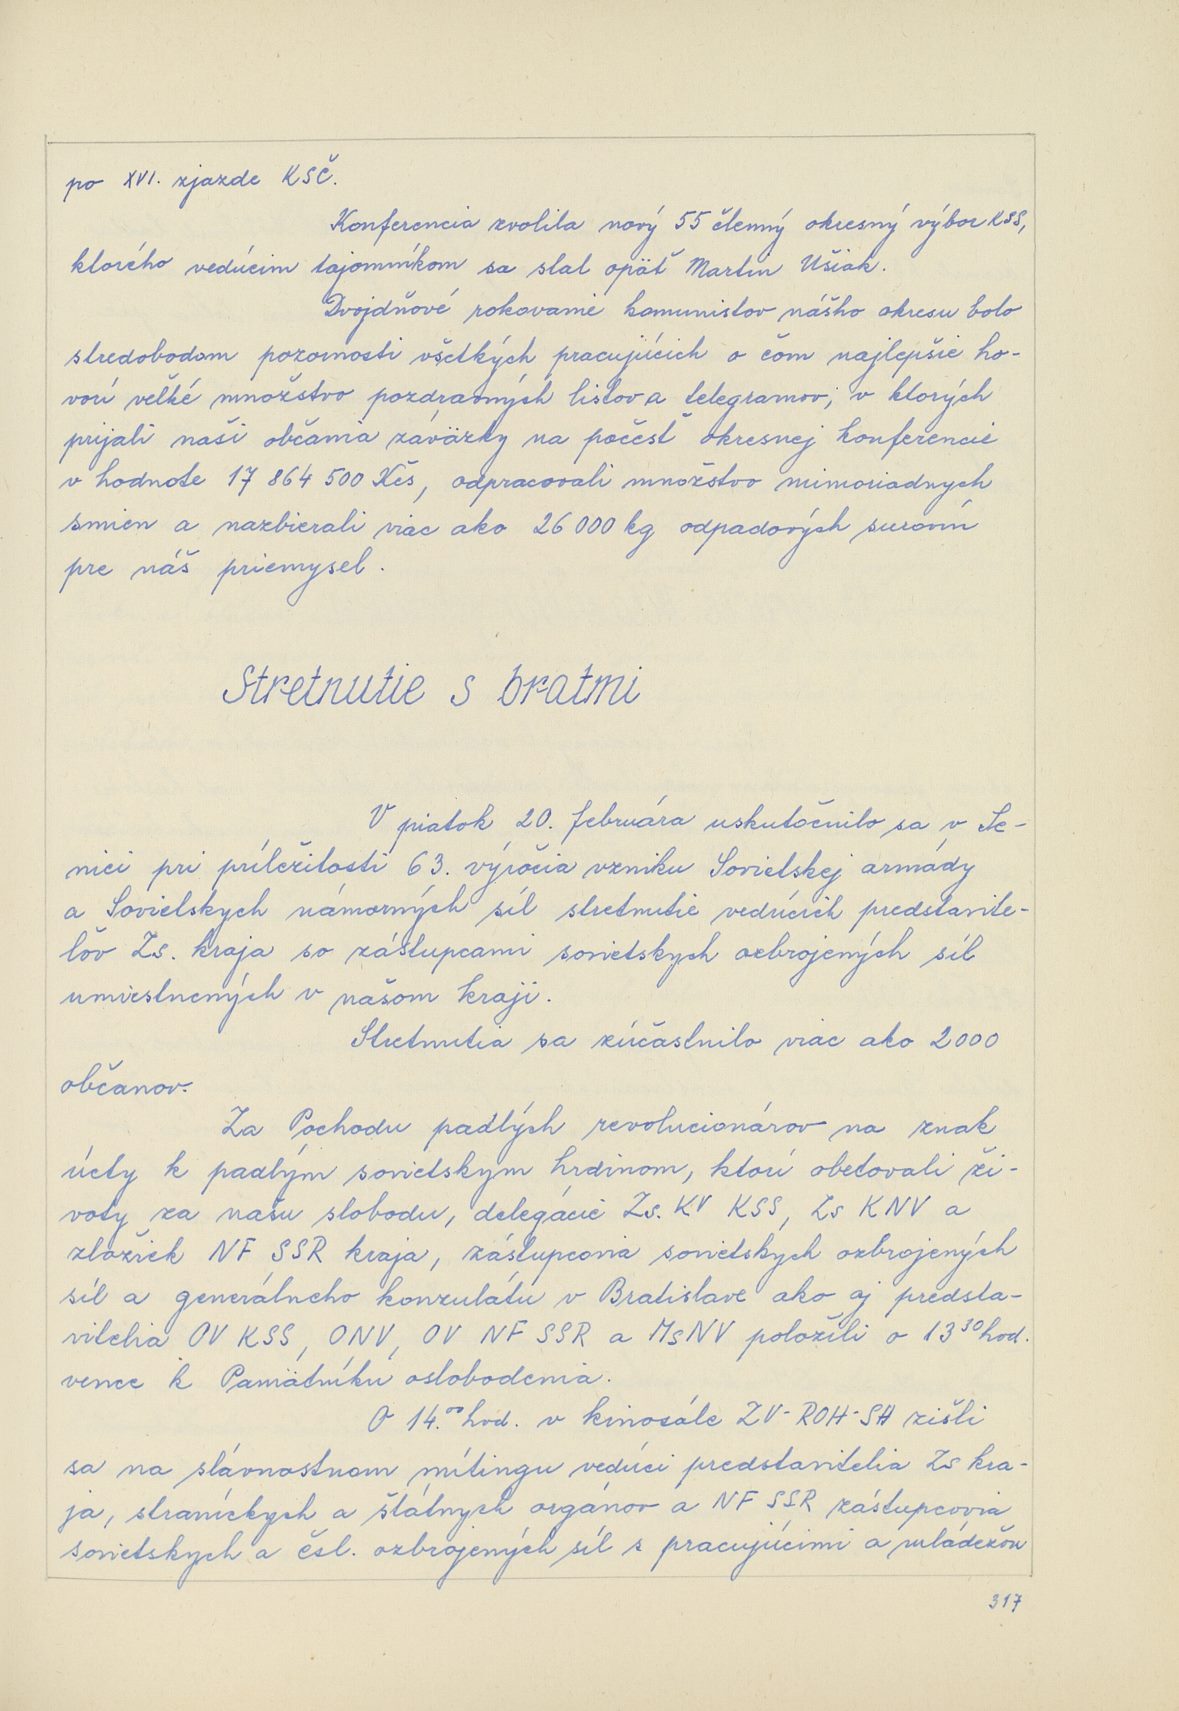 po XVI. zjazde KSČ.
Konferencia zvolila nový 55 členný okresný výbor KSS,
ktorého vedúcim tajomníkom sa stal opäť Martin Ušiak.
Dvojdňové rokovanie komunistov nášho okresu bolo
stredobodom pozornosti všetkých pracujúcich o čom najlepšie ho-
vorí veľké množstvo pozdravných listov a telegramov, v ktorých
prijali naši občania záväzky na počesť okresnej konferencie
v hodnote 17 864 500 Kčs, odpracovali množstvo mimoriadnych
smien a nazbierali viac ako 26 000 kg odpadových surovín
pre náš priemysel.
Stretnutie s bratmi
V piatok 20. februára uskutočnilo sa v Se-
nici pri príležitosti 63. výročia vzniku Sovietskej armády
a Sovietských námorných síl stretnutie vedúcich predstavite-
ľov Zs. kraja so zástupcami sovietskych ozbrojených síl
umiestnených v našom kraji.
Stretnutia sa zúčastnilo viac ako 2000
občanov.
Za Pochodu padlých revolucionárov na znak
úcty k padlým sovietskym hrdinom, ktorí obetovali ži-
voty za našu slobodu, delegácie Zs. KV KSS, Zs KNV a
zložiek NF SSR kraja, zástupcovia sovietskych ozbrojených
síl a generálneho konzulátu v Bratislave ako aj predsta-
vitelia OV KSS, ONV, OV NF SSR a MsNV položili o 13³⁰ hod.
vence k Pamätníku oslobodenia.
O 14.⁰⁰ hod. v kinosále ZV-ROH-SH zišli
sa na slávnostnom mítingu vedúci predstavitelia Zs kra-
ja, straníckych a štátnych orgánov a NF SSR zástupcovia
sovietskych a čsl. ozbrojených síl s pracujúcimi a mládežou
317